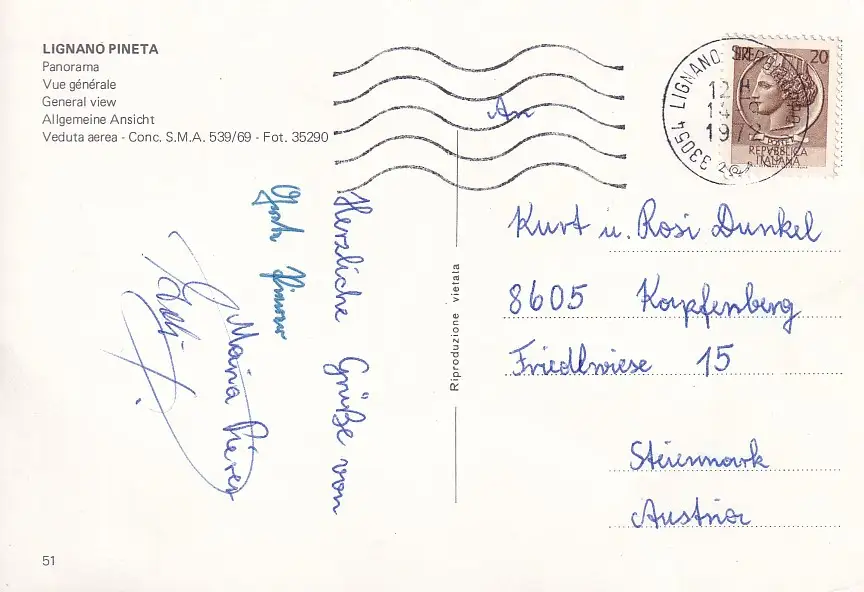 LIGNANO PINETA
Panorama
Vue générale
General view
Allgemeine Ansicht
Veduta aerea - Conc. S.M.A. 539/69 - Fot. 35290
Herzliche Grüße von
Maria
Riproduzione vietata
51
33054 LIGNANO
12 H
14
1972
20
REPVBBLICA
ITALIANA
An
Kurt u. Rosi Dunkel
8605 Kapfenberg
Friedlwiese 15
Steiermark
Austria